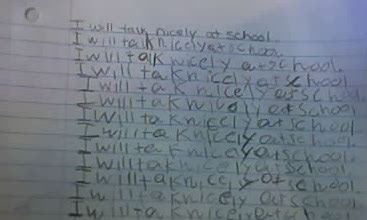 I will talk nicely at school.
I will talk nicely at school
I will talk nicely at school.
I will tak nicely at school
I will tak nicely at school
I will tak at school
I will tak nicely at school.
I will tak nicely at school.
I will tak nicely at school.
I will tak nicely at school.
I will tak nicely at school.
I will tak nicely at school.
I will tak nicely at school.